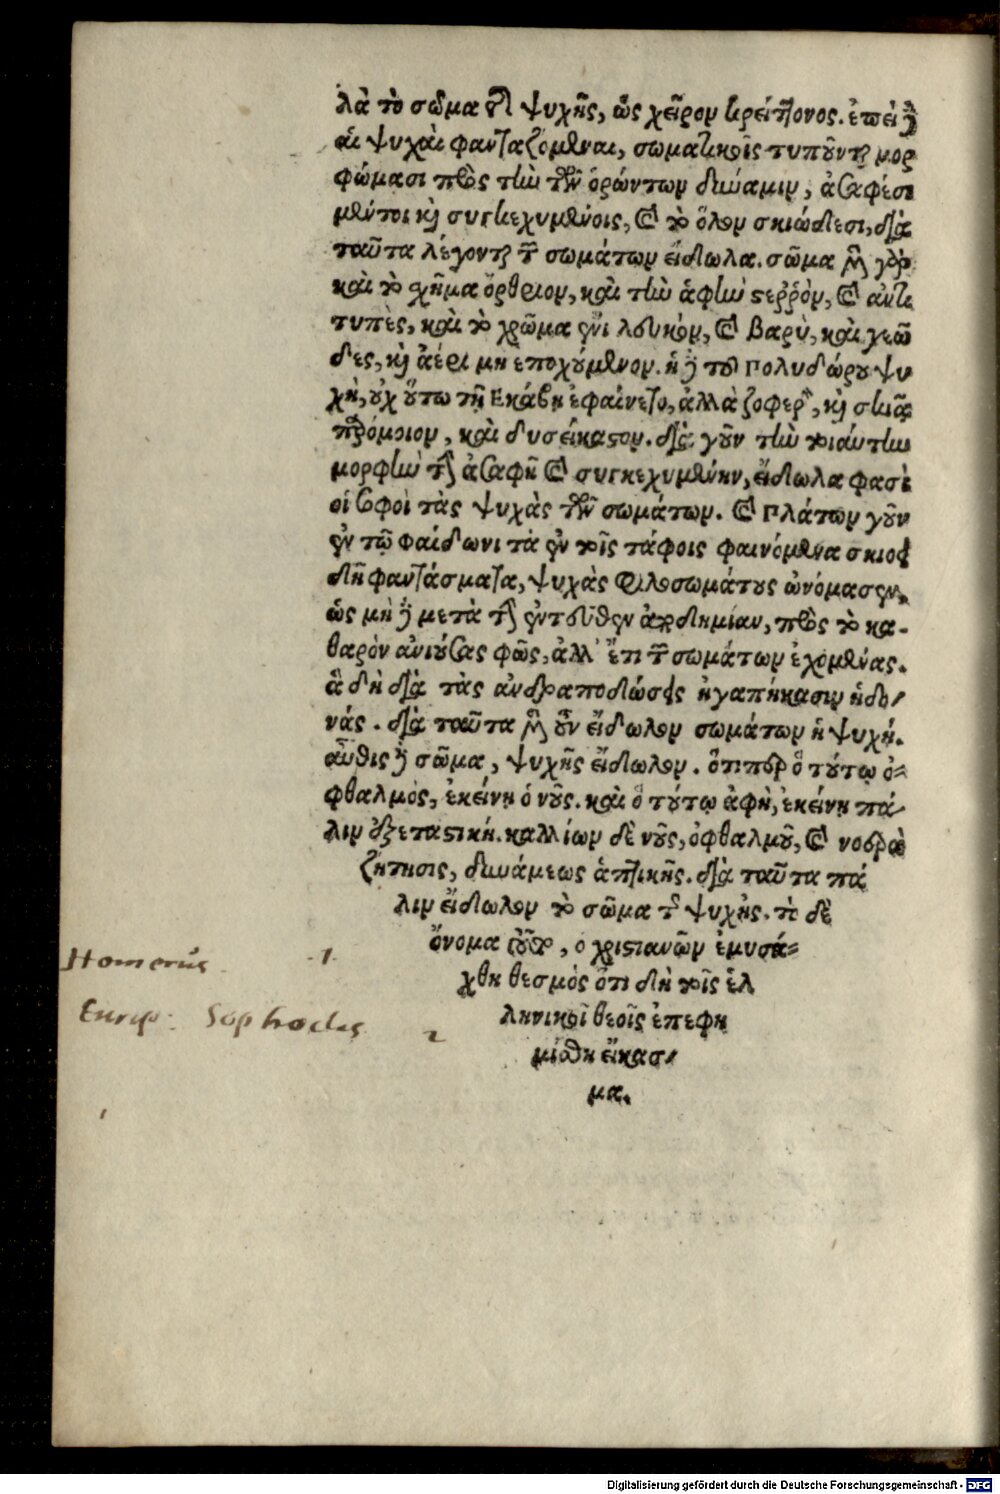 λὰ τὸ σῶμα τῆς ψυχῆς, ὡς χεῖρον κρείττονος. ἐπεὶ δὲ
αἱ ψυχαὶ φανταζόμεναι, σωματικοῖς τυποῦνται μορ
φώμασι πρὸς τὴν τῶν ὁρώντων δύναμιν, ἀσαφέσι
μέντοι καὶ συγκεχυμένοις, καὶ τὸ ὅλον σκιώδεσι, διὰ
ταῦτα λέγονται τῶν σωμάτων εἴδωλα. σῶμα μὲν γὰρ
καὶ τὸ σχῆμα ὄρθριον, καὶ τὴν ἁφὴν στερρὸν, καὶ ἀντι
τυπὲς, καὶ τὸ χρῶμα ἐνὶ λευκὸν, καὶ βαρὺ, καὶ γεῶ
δες, καὶ ἀέρι μὴ ἐποχούμενον. ἡ δὲ τοῦ Πολυδώρου ψυ
χὴ, οὐχ οὕτω τῇ Ἑκάβῃ ἐφαίνετο, ἀλλὰ ζοφερὰ, καὶ σκιᾷ
παρόμοιον, καὶ δυσείκαστον. διὰ γοῦν τὴν τοιαύτην
μορφὴν τὴν ἀσαφῆ καὶ συγκεχυμένην, εἴδωλα φασὶ
οἱ σοφοὶ τὰς ψυχὰς τῶν σωμάτων. καὶ Πλάτων γοῦν
ἐν τῷ Φαίδωνι τὰ ἐν τοῖς τάφοις φαινόμενα σκιοει
δῆ φαντάσματα, ψυχὰς φιλοσωμάτους ὠνόμασεν,
ὡς μὴ δὲ μετὰ τὴν ἐντεῦθεν ἀποδημίαν, πρὸς τὸ κα-
θαρὸν ἀνιούσας φῶς, ἀλλ' ἔτι τῶν σωμάτων ἐχομένας.
ἃ δὴ διὰ τὰς ἀνδραποδώσεις ἠγαπήκασιν ἡδο/
νάς. διὰ ταῦτα μὲν οὖν εἴδωλον σωμάτων ἡ ψυχή.
αὖθις δὲ σῶμα, ψυχῆς εἴδωλον. ὅτιπερ ὁ τούτῳ ὀ=
φθαλμὸς, ἐκείνῃ ὁ νοῦς. καὶ ὃ τούτῳ ἁφὴ, ἐκείνῃ πά/
λιν ἐξεταστική. καλλίων δὲ νοῦς, ὀφθαλμοῦ, καὶ νοερὰ
ζήτησις, δυνάμεως ἁπτικῆς. διὰ ταῦτα πά
λιν εἴδωλον τὸ σῶμα τῆς ψυχῆς. τὸ δὲ
ὄνομα τοῦτο, ὁ χριστιανῶν ἐμυσά=
χθη θεσμὸς ὅτι δὴ τοῖς ἑλ
ληνικοῖ θεοῖς ἐπεφη
μίσθη εἴκασ/
μα.
Homerus 1.
Eurip: Sophocles 2
Digitalisierung gefördert durch die Deutsche Forschungsgemeinschaft - DFG